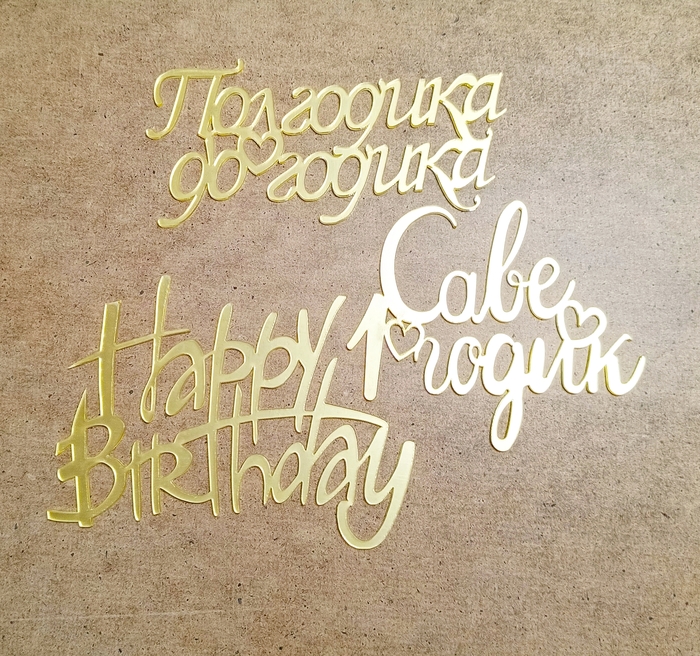 Полгодика
до годика
Саве
1 годик
Happy
Birthday